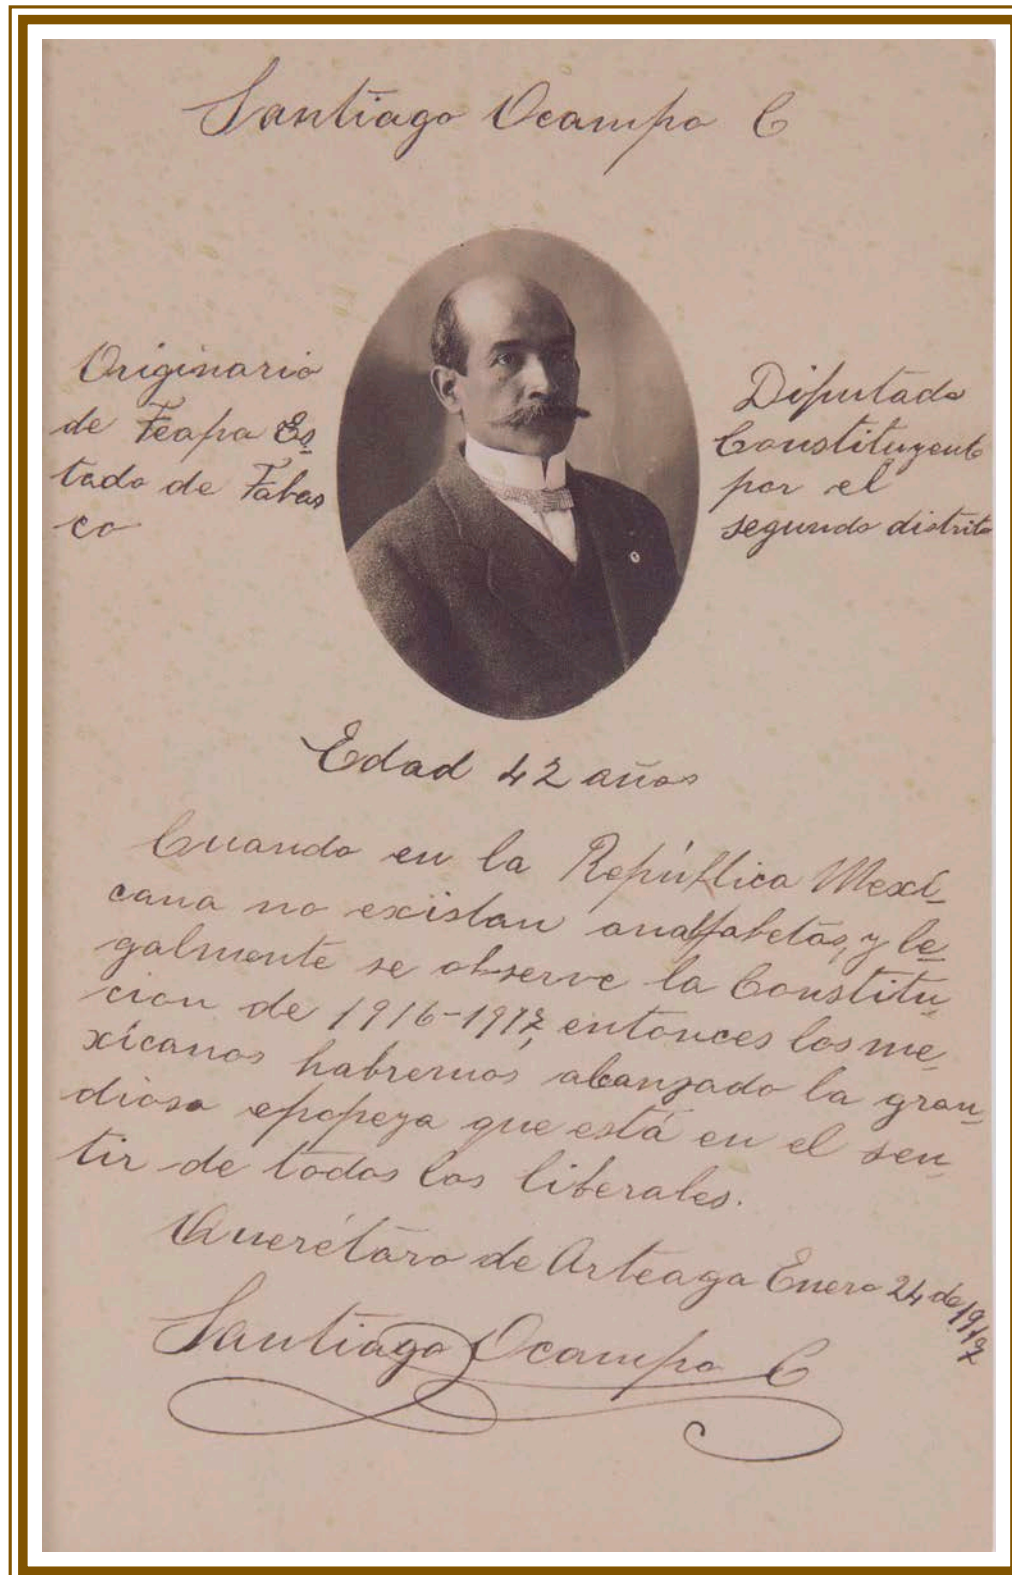 Santiago Ocampo C
Originario
de Teapa Es
tado de Tabas
co
Diputado
Constituyente
por el
segundo distrito
Edad 42 años
Cuando en la República Mexi-
cana no existan analfabetas, y le
galmente se observe la Constitu-
cion de 1916-1917, entonces los me-
xicanos habremos alcanzado la gran-
diosa epopeya que está en el sen-
tir de todos los liberales.
Querétaro de Arteaga Enero 24 de 1917
Santiago Ocampo C